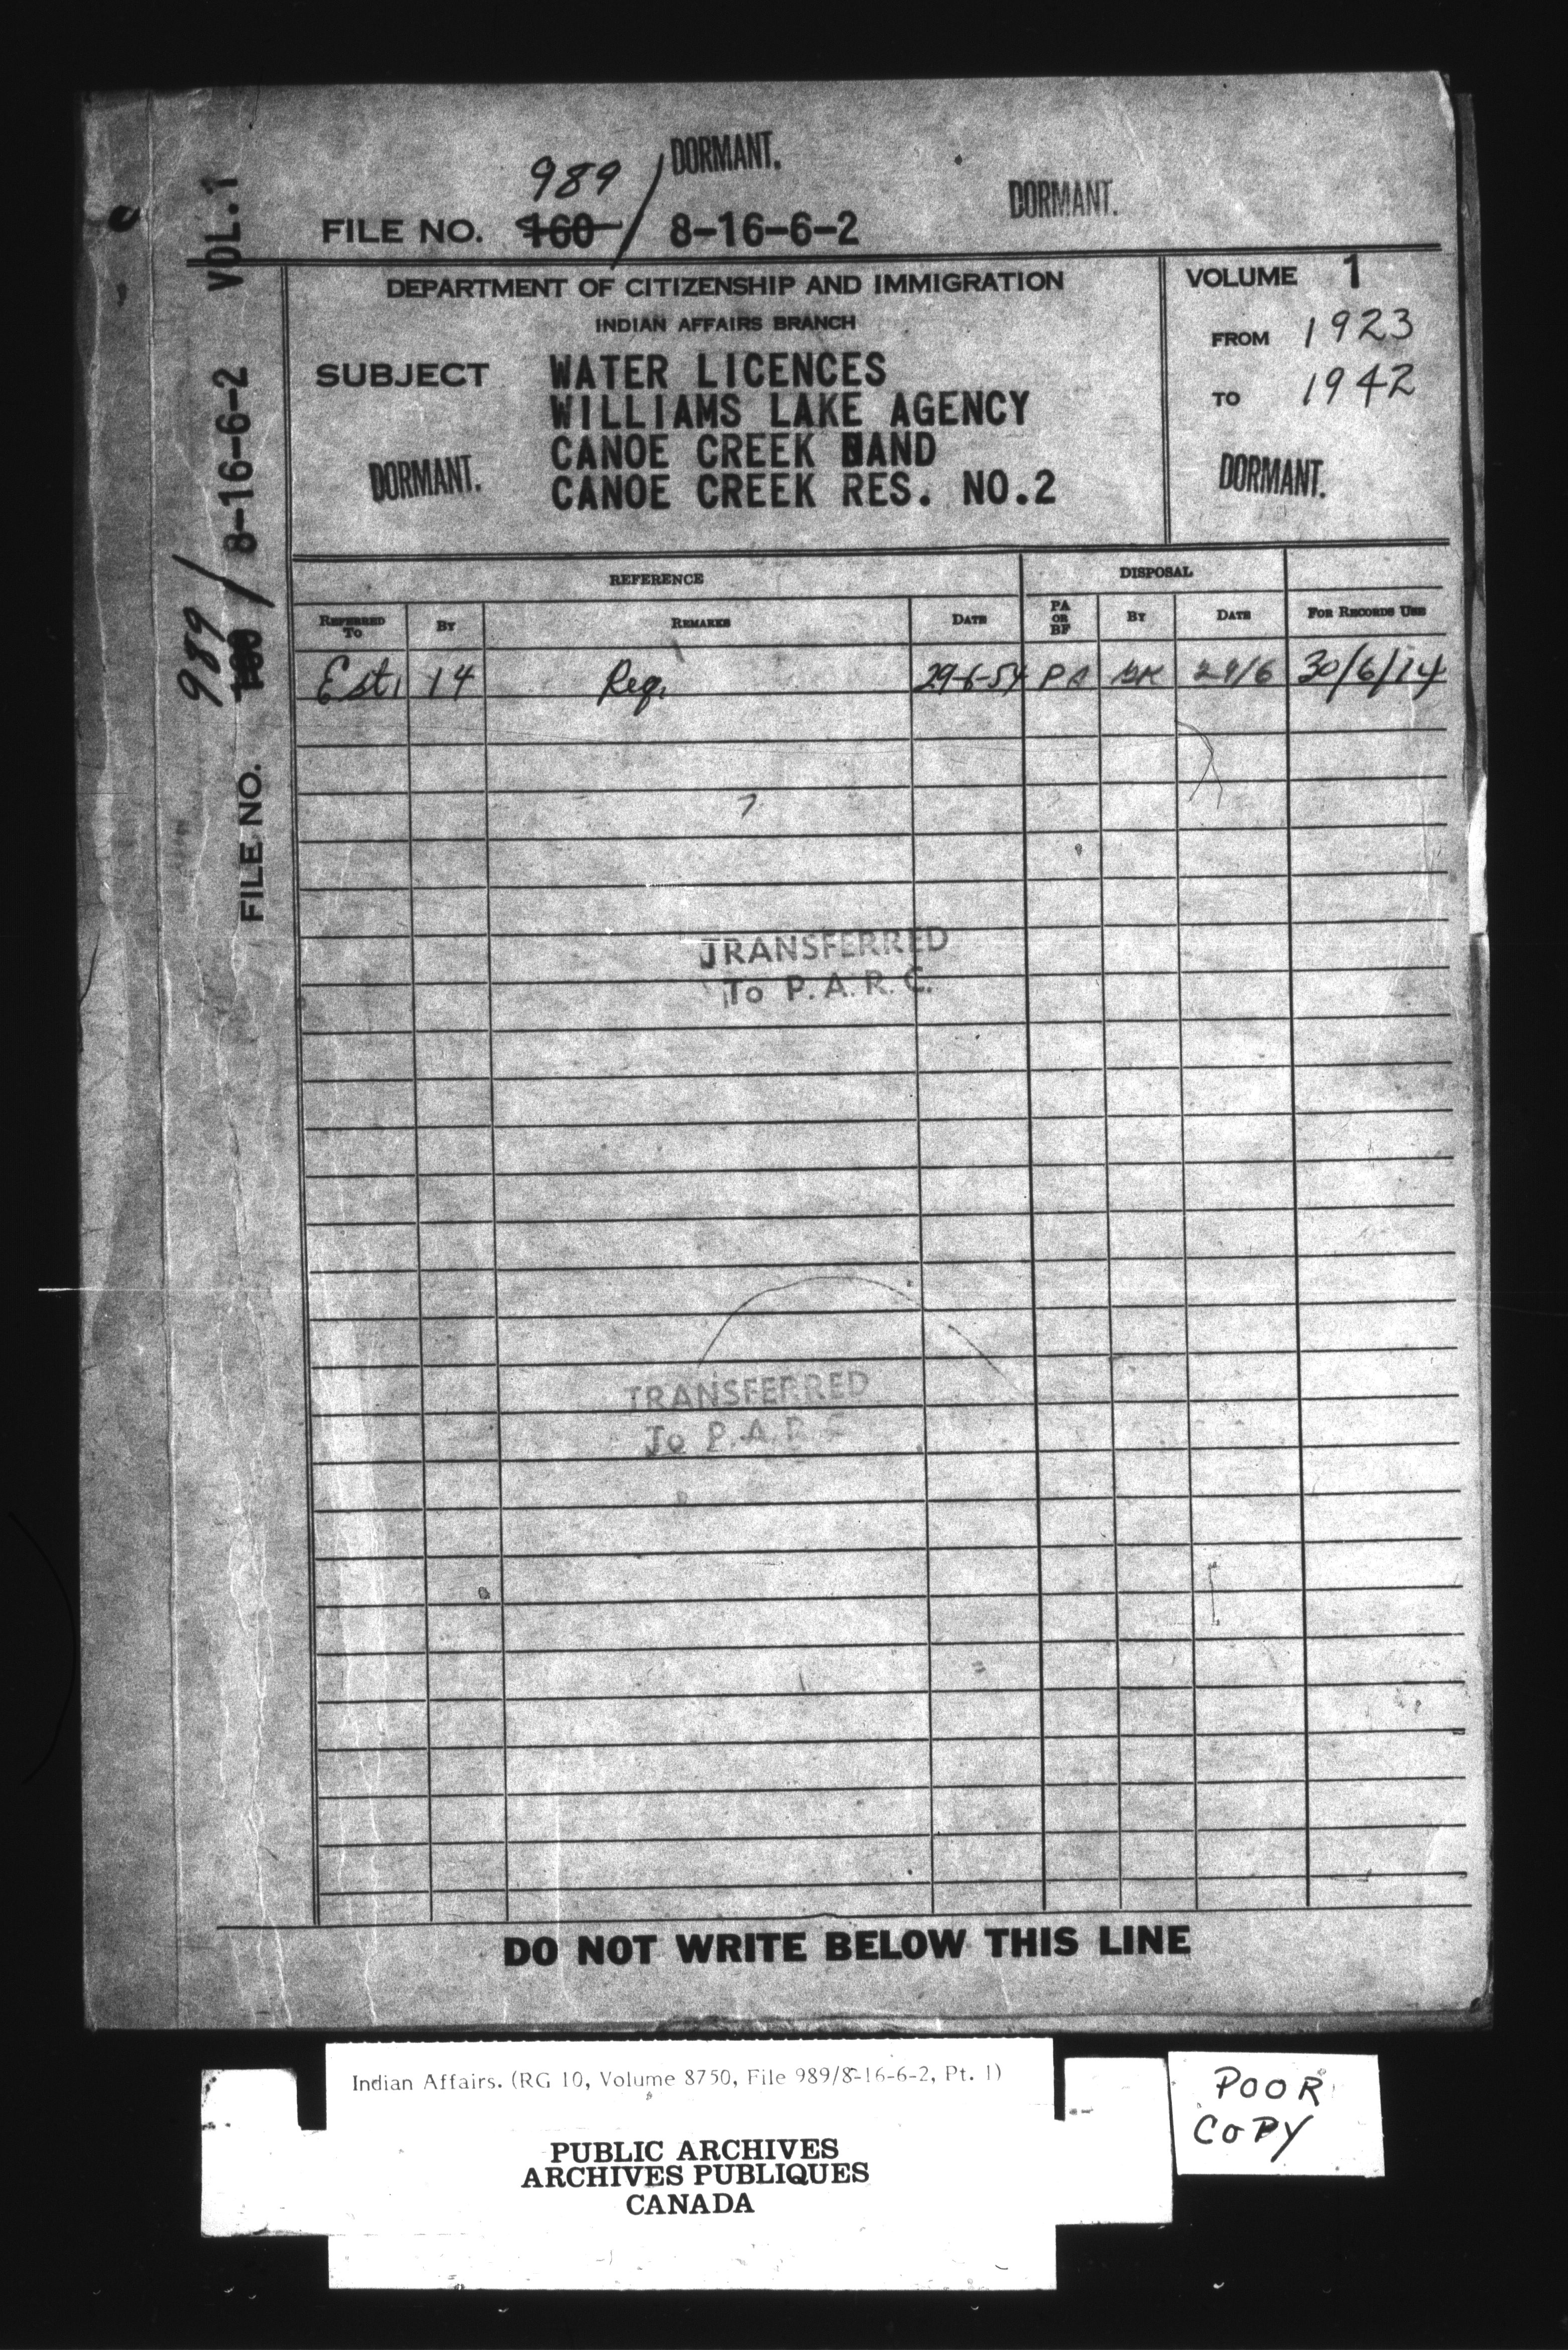 DORMANT.
989
FILE NO. 160 / 8-16-6-2
DORMANT.
DEPARTMENT OF CITIZENSHIP AND IMMIGRATION
INDIAN AFFAIRS BRANCH
SUBJECT WATER LICENCES
WILLIAMS LAKE AGENCY
CANOE CREEK BAND
CANOE CREEK RES. NO.2
DORMANT.
VOLUME 1
FROM 1923
TO 1942
DORMANT.
FILE NO. 989 / 8-16-6-2 VOL.1
REFERENCE DISPOSAL
REFERRED TO BY REMARKS DATE PA OR BF BY DATE FOR RECORDS USE
Est. 14 Req. 29-6-54 PA 29/6 30/6/14
TRANSFERRED
To P.A.R.C.
TRANSFERRED
To P.A.R.C
DO NOT WRITE BELOW THIS LINE
Indian Affairs. (RG 10, Volume 8750, File 989/8-16-6-2, Pt. 1)
PUBLIC ARCHIVES
ARCHIVES PUBLIQUES
CANADA
POOR
COPY